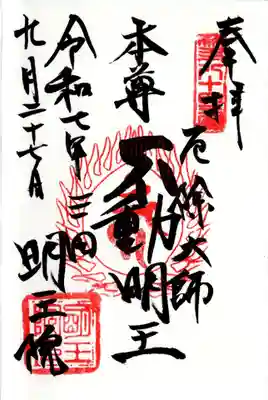 奉拝
厄除大師
本尊 不動明王
令和七年 三田 明王院
九月二十七日